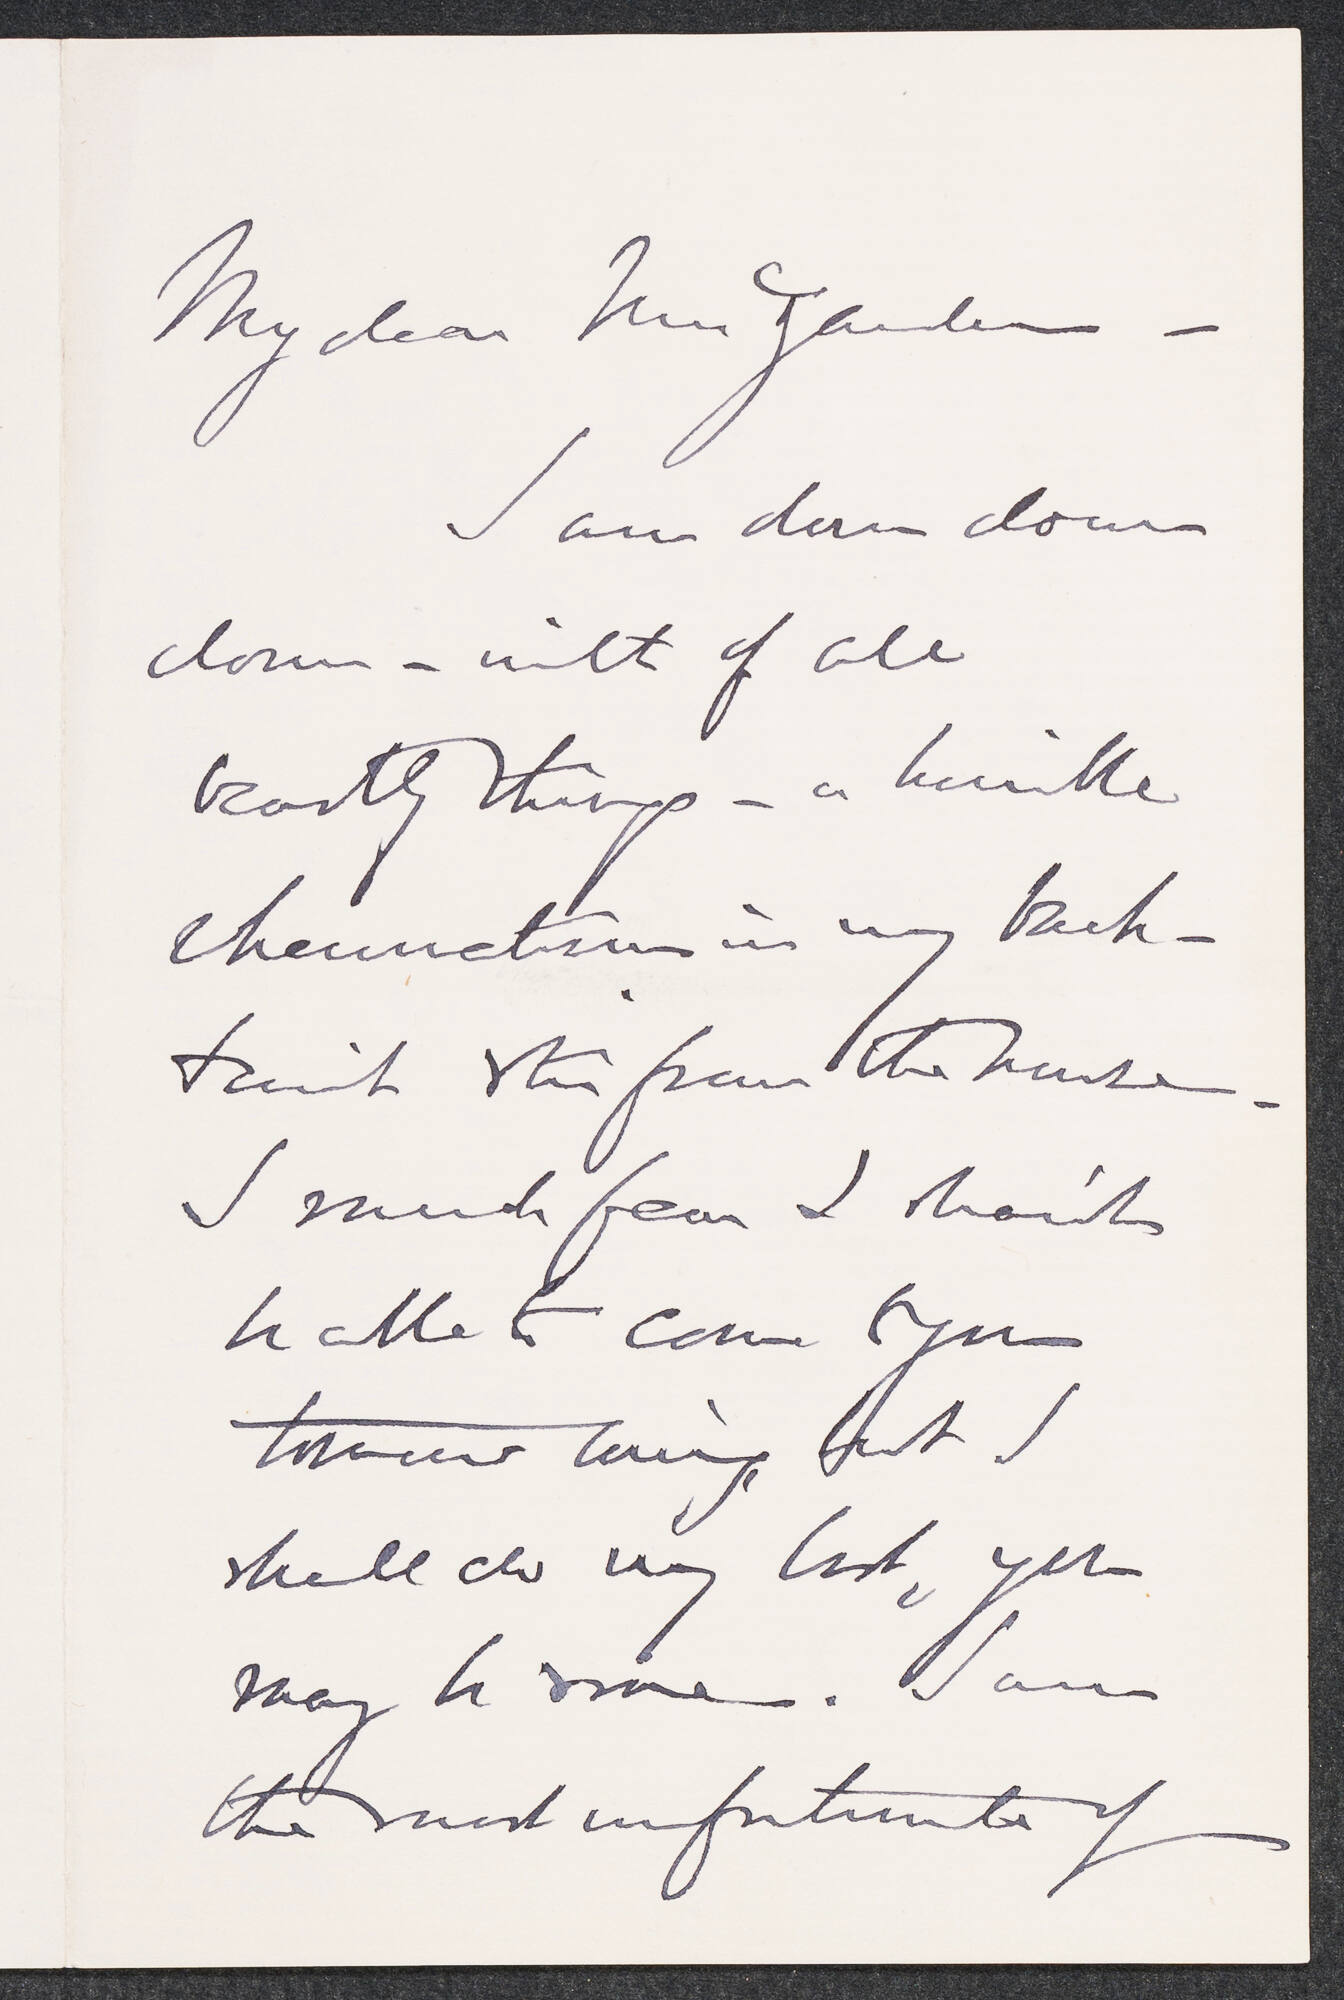 My dear Mrs Gardner —
I am down down
down — with of all
beastly things — a horrible
rheumatism in my back —
I can't stir from the house —
I much fear I shan't
be able to come to you
tomorrow evening, but I
shall do my best, you
may be sure. I am
the most unfortunate of